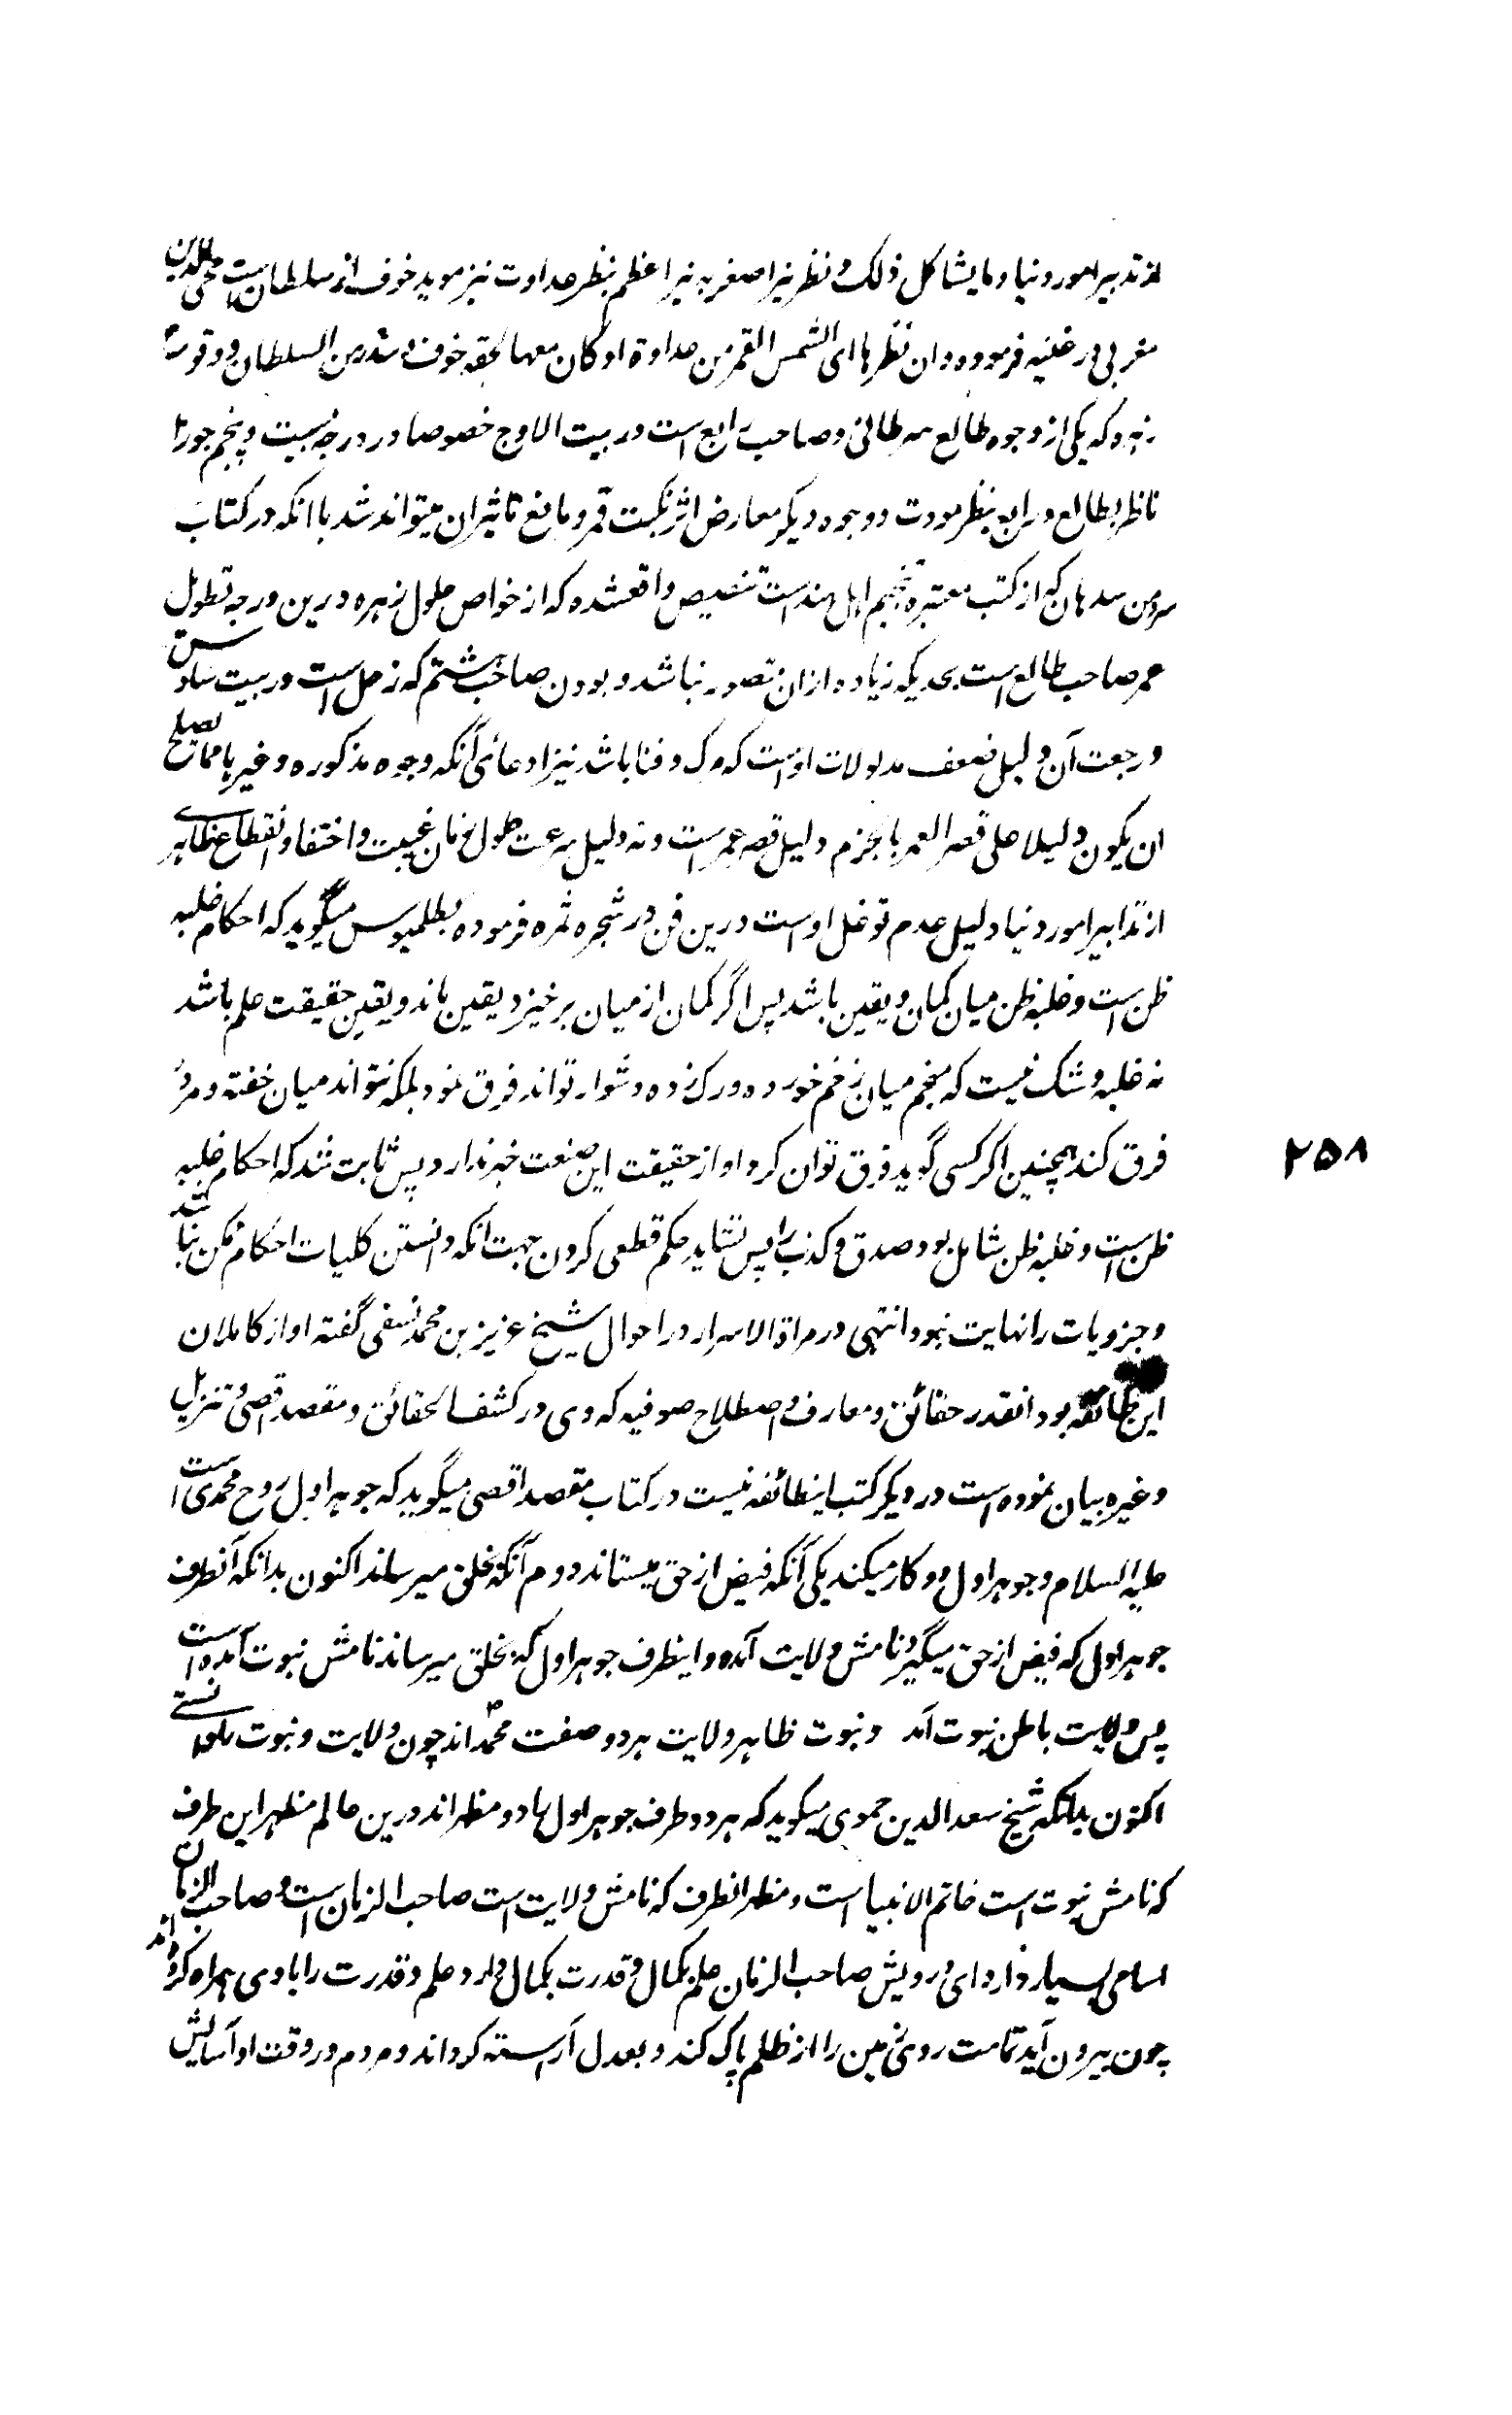 از تدبیر امور دنیا و مایشاکل ذلک و نظر نیر اصغر به نیر اعظم بنظر عداوت نیز موید خوف از سلطان است محی الدین
مغربی در غنیه فرموده و ان نظرها ای الشمس القمر من عداوة او کان معها لحقه خوف و شدة من السلطان و وقوع
زهره که یکی از وجوه طالع سرطانی و صاحب رابع است در بیت الاوج خصوصا در درجه بیست و پنجم جوزا
ناظر بطالع و رابع بنظر مودت دو وجوه دیگر معارض اثر نکبت قمر و مانع تاثیر ان میتواند شد با انکه در کتاب
که از کتب معتبره تنجیم اهل هند است تنصیص واقعشده که از خواص حلول زهره درین درجه تطویل
عمر صاحب طالع است بحدیکه زیاده ازان متصور نباشد و بودن صاحب هشتم که زحل است در بیت سادس
و رجعت آن دلیل ضعف مدلولات اوست که مرگ و فنا باشد نیز ادعای آنکه وجوه مذکوره و غیرها مما یصلح
ان یکون دلیلا علی قصر العمر بالجزم دلیل قصر عمر است و نه دلیل سرعت حلول زمان غیبت و اختفا و انقطاع ظاهری
از تدابیر امور دنیا دلیل عدم توغل اوست درین فن در شجره ثمره فرموده بطلمیوس میگوید که احکام غلبه
ظن است و غلبه ظن میان گمان و یقین باشد پس اگر گمان از میان برخیزد یقین ماند و یقین حقیقت علم باشد
نه غلبه و شک نیست که منجم میان زخم خورده و رگ زده دشوار تواند فرق نمود بلکه نتواند میان خفته و مرده
فرق کند همچنین اگر کسی گوید فرق توان کرد او از حقیقت این صنعت خبر ندارد پس ثابت شد که احکام غلبه
ظن است و غلبه ظن شامل بود صدق و کذب را پس نشاید حکم قطعی کردن جهت انکه دانستن کلیات احکام ممکن نباشد
و جزویات را نهایت نبود انتهی در مراة الاسرار در احوال شیخ عزیز بن محمد نسفی گفته او از کاملان
این طائفه بود انقدر حقائق و معارف و اصطلاح صوفیه که وی در کشف الحقائق و مقصد اقصی و تنزیل
و غیره بیان نموده است در دیگر کتب اینطائفه نیست در کتاب مقصد اقصی میگوید که جوهر اول روح محمدی است
علیه السلام و جوهر اول دو کار میکند یکی آنکه فیض از حق میستاند دوم آنکه بخلق میرساند اکنون بدانکه آنطرف
جوهر اول که فیض از حق میگیرد نامش ولایت آمده و اینطرف جوهر اول که بخلق میرساند نامش نبوت آمده است
پس ولایت باطن نبوت آمد و نبوت ظاهر ولایت هر دو صفت محمد اند چون ولایت و نبوت دانستی
اکنون بدانکه شیخ سعد الدین حموی میگوید که هر دو طرف جوهر اول را دو مظهر اند درین عالم مظهر این طرف
که نامش نبوت است خاتم الانبیا است و مظهر انطرف که نامش ولایت است صاحب الزمان است و صاحب الزمان
اسامی بسیار دارد ای درویش صاحب الزمان علم بکمال و قدرت بکمال دارد علم و قدرت را با وی همراه کرده اند
چون بیرون آید تمامت روی زمین را از ظلم پاک کند و بعدل آراسته گرداند و مردم در وقت او آسایش
۲۵۸